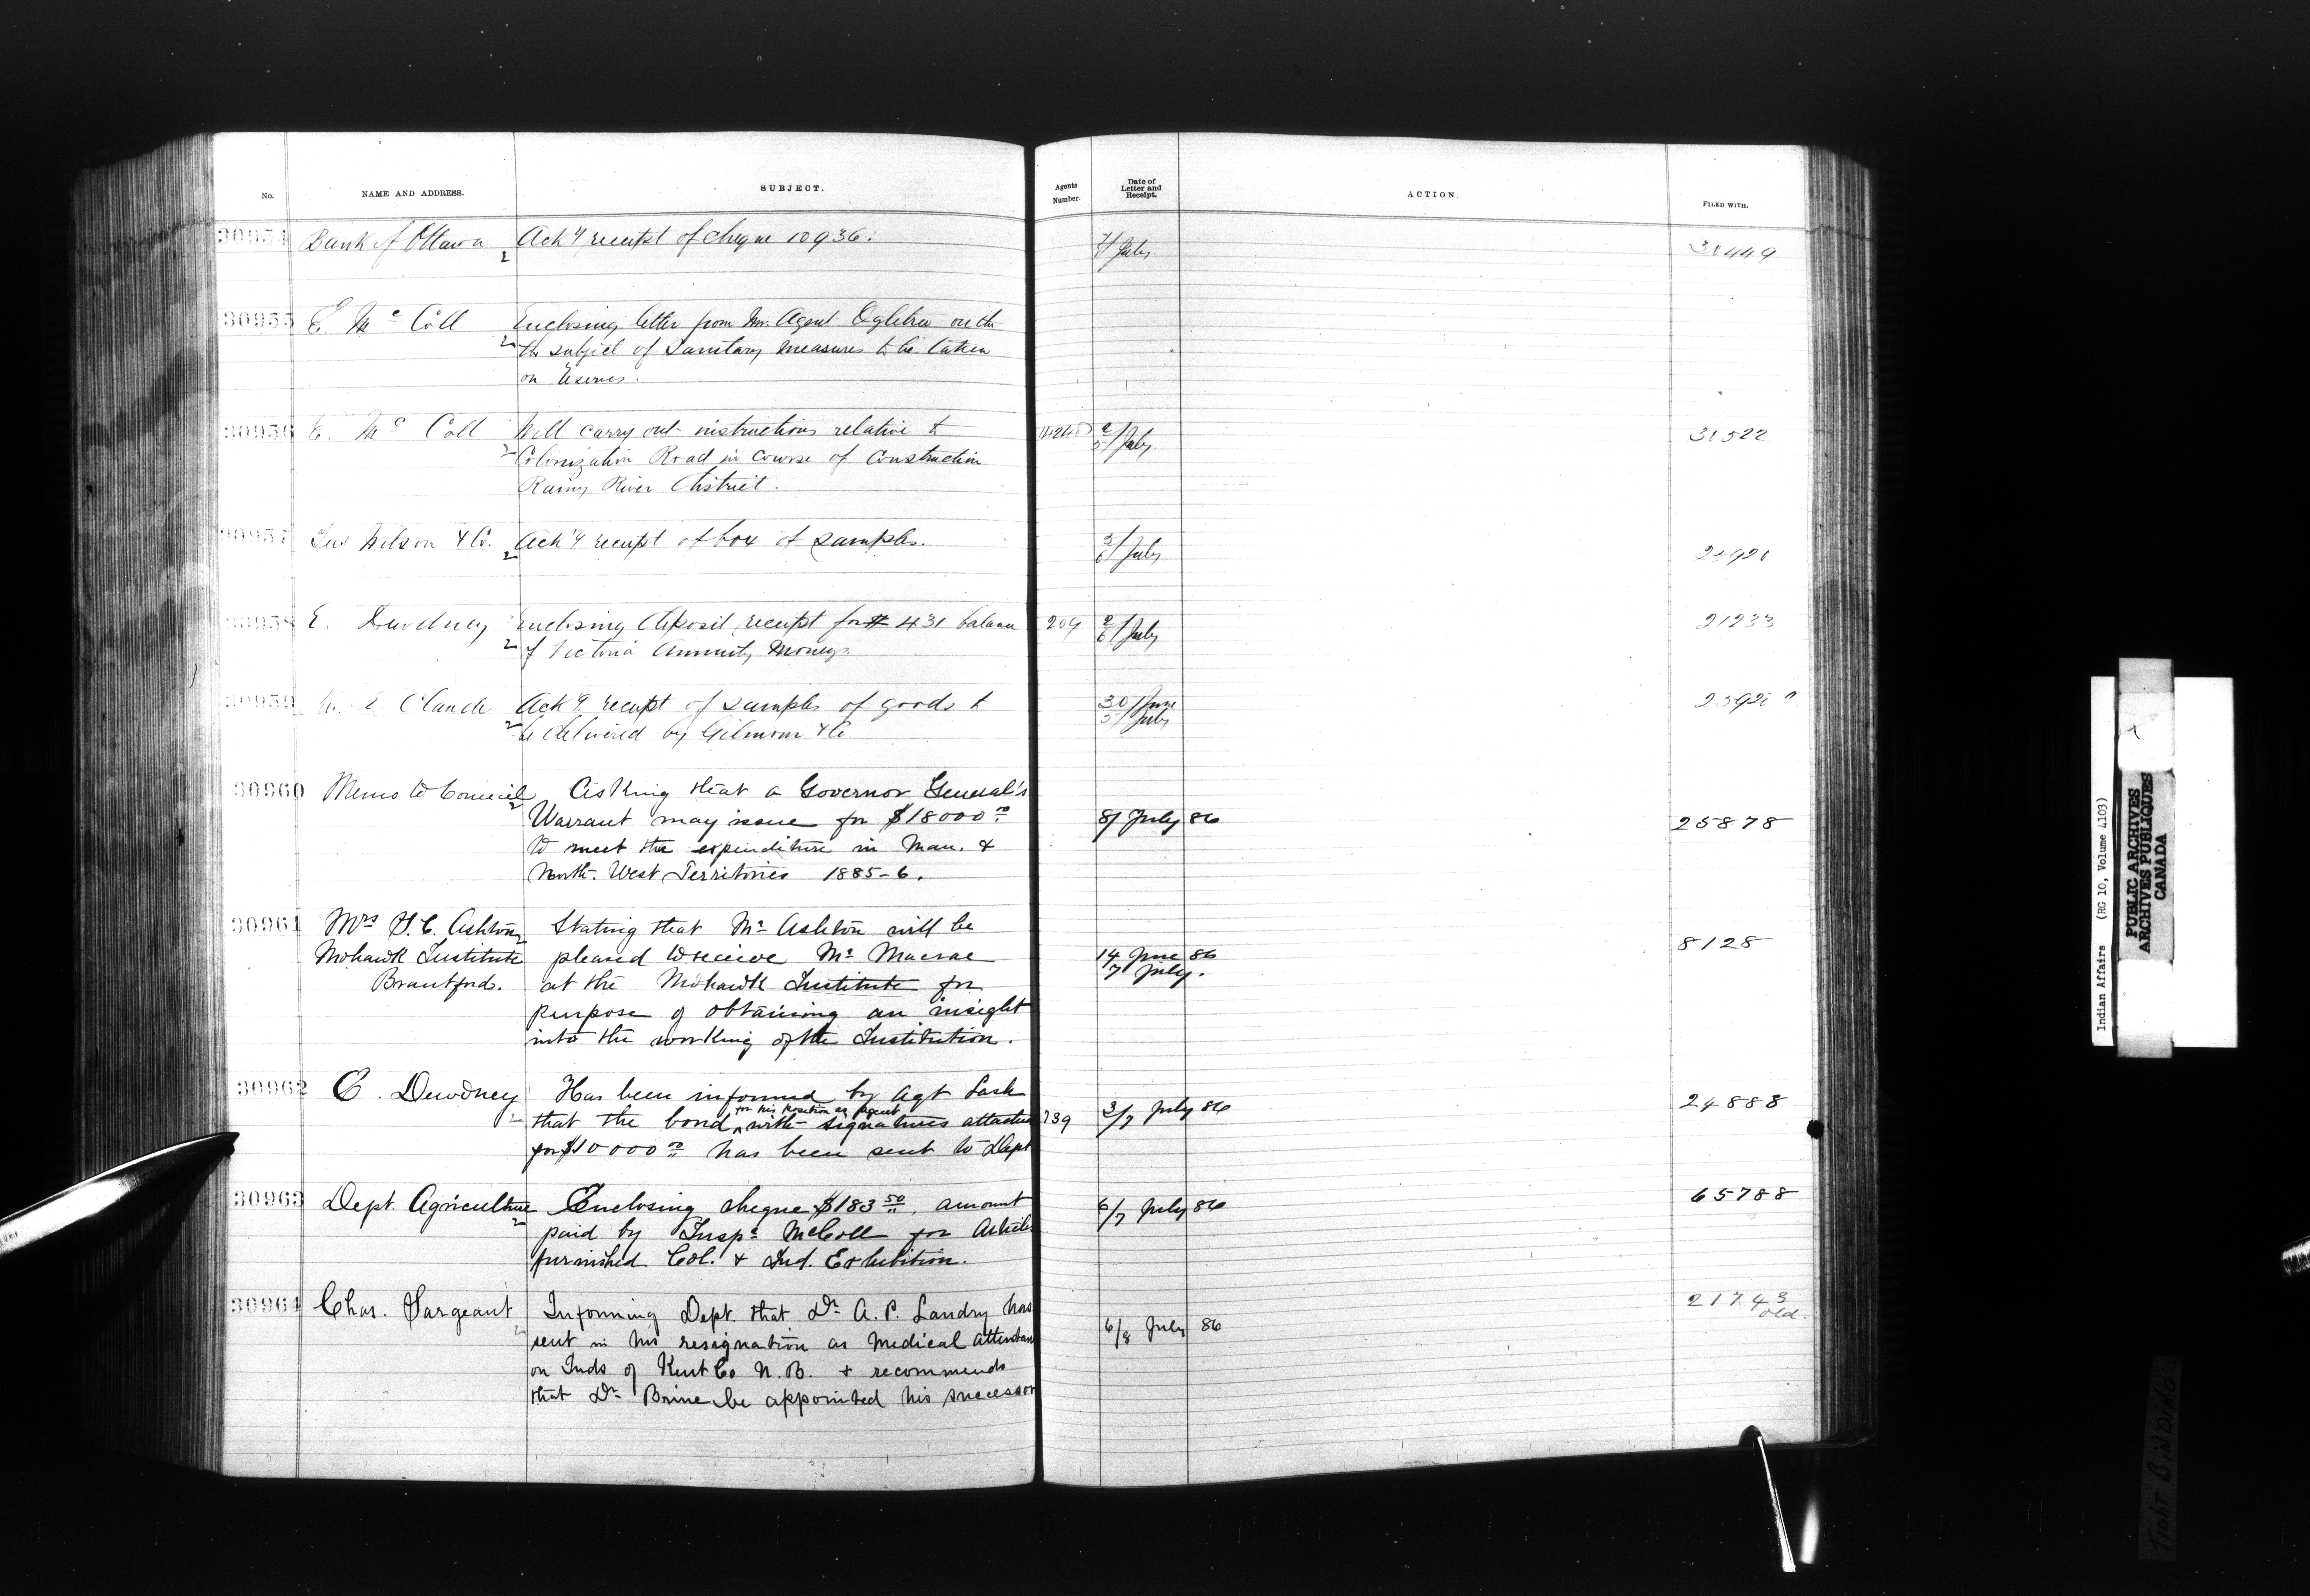 No. NAME AND ADDRESS. SUBJECT. Agents Number. Date of Letter and Receipt. ACTION. FILED WITH.
30954 Bank of Ottawa Ack'g receipt of cheque 10936. 7/ July 30449
30955 E. McColl Enclosing letter from Mr. Agent Ogletree on the
the subject of Sanitary measures to be taken
on Reserves.
30956 E. McColl Will carry out instructions relative to 2/5/ July 31522
Colonization Road in course of construction
Rainy River District.
30957 Jas Wilson & Co. Ack'g receipt of box of samples. 3/6/ July
30958 E. Dewdney Enclosing deposit receipt for $431 balance 209 2/6/ July 21233
of Victoria Annuity Moneys.
30959 Claude Ack'g receipt of samples of goods to 30/ June
be delivered by Gilmour & Co 5/ July
30960 Memo to Council Asking that a Governor General's
Warrant may issue for $18000.00 8/ July 86 25878
to meet the expenditure in Man. &
North-West Territories 1885-6.
30961 Mrs. Ashton Stating that Mr Ashton will be 8128
Mohawk Institute pleased to receive Mr Macrae 14 June 86
Brantford. at the Mohawk Institute for 7 July.
purpose of obtaining an insight
into the working of the Institution.
30962 E. Dewdney Has been informed by Agt Lash 24888
that the bond for his position as Agent with signatures attached 739 3/7 July 86
for $10000.00 has been sent to Dept
30963 Dept. Agriculture Enclosing cheque $183.50, amount 6/7 July 86 65788
paid by Inspr McColl for Articles
furnished Col. & Ind. Exhibition.
30964 Chas. Sargeant Informing Dept. that Dr A. P. Landry has 21743 old.
sent in his resignation as medical attendant 6/8 July 86
on Inds of Kent Co N.B. & recommends
that Dr Brine be appointed his successor
Indian Affairs (RG 10, Volume 4103)
PUBLIC ARCHIVES
ARCHIVES PUBLIQUES
CANADA
TIGHT BINDING